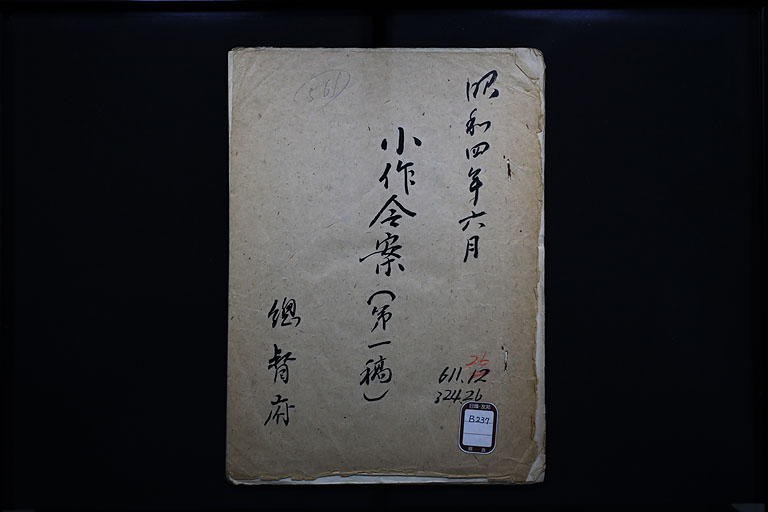 昭和四年六月
小作令案(第一稿)
總督府
561
25
611.12
324.26
B237